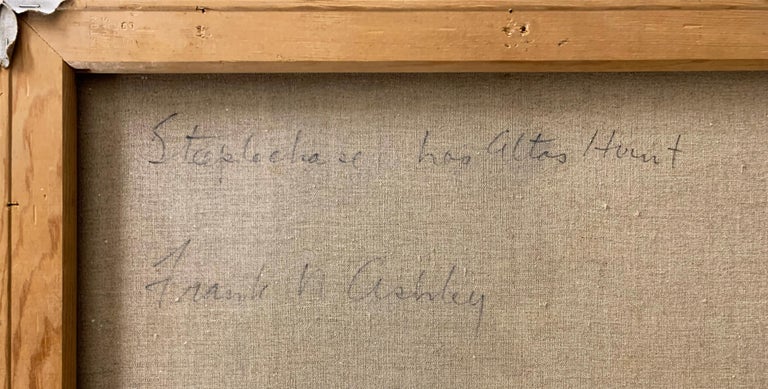 Steeplechase, Los Altos Hunt
Frank N Ashley